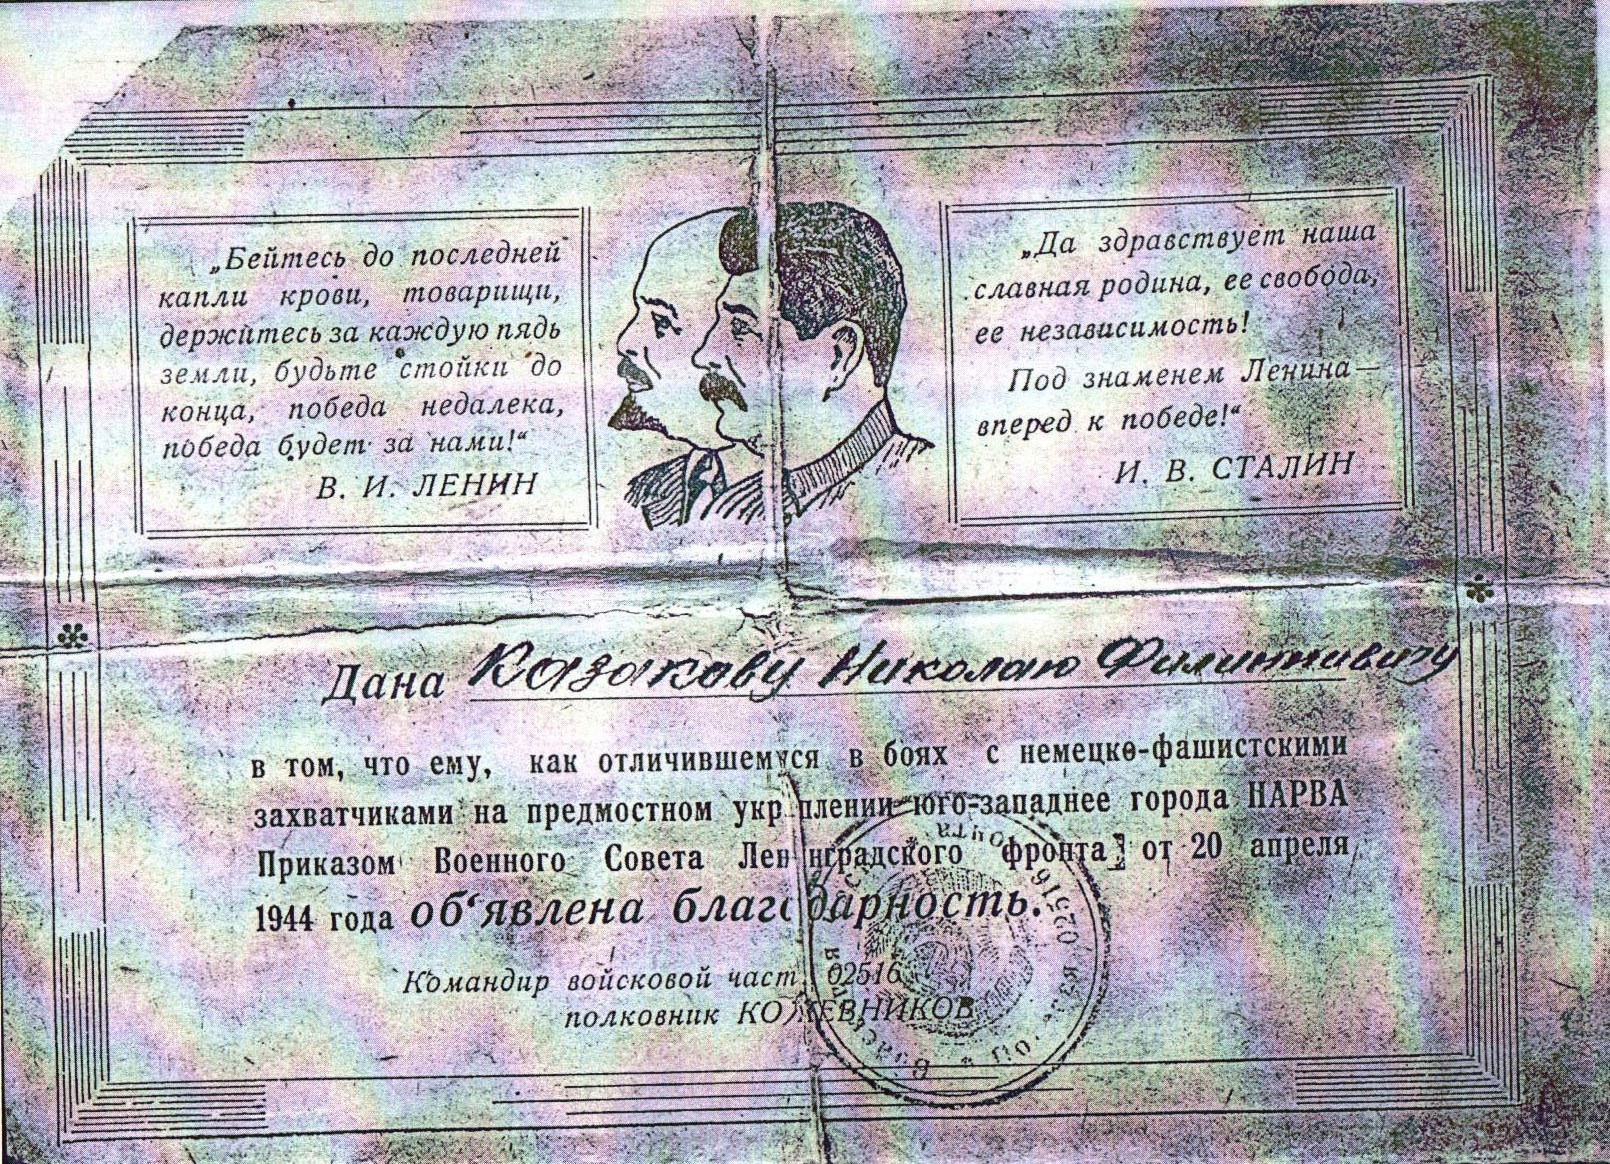 „Бейтесь до последней
капли крови, товарищи,
держитесь за каждую пядь
земли, будьте стойки до
конца, победа недалека,
победа будет за нами!“
В. И. ЛЕНИН
„Да здравствует наша
славная родина, ее свобода,
ее независимость!
Под знаменем Ленина—
вперед к победе!“
И. В. СТАЛИН
Дана Казакову Николаю
в том, что ему, как отличившемуся в боях с немецко-фашистскими
захватчиками на предмостном укр плении юго-западнее города НАРВА
Приказом Военного Совета Лен нградского фронта от 20 апреля
1944 года об‘явлена благодарность.
Командир войсковой част 02516
полковник КОЖЕВНИКОВ
02516